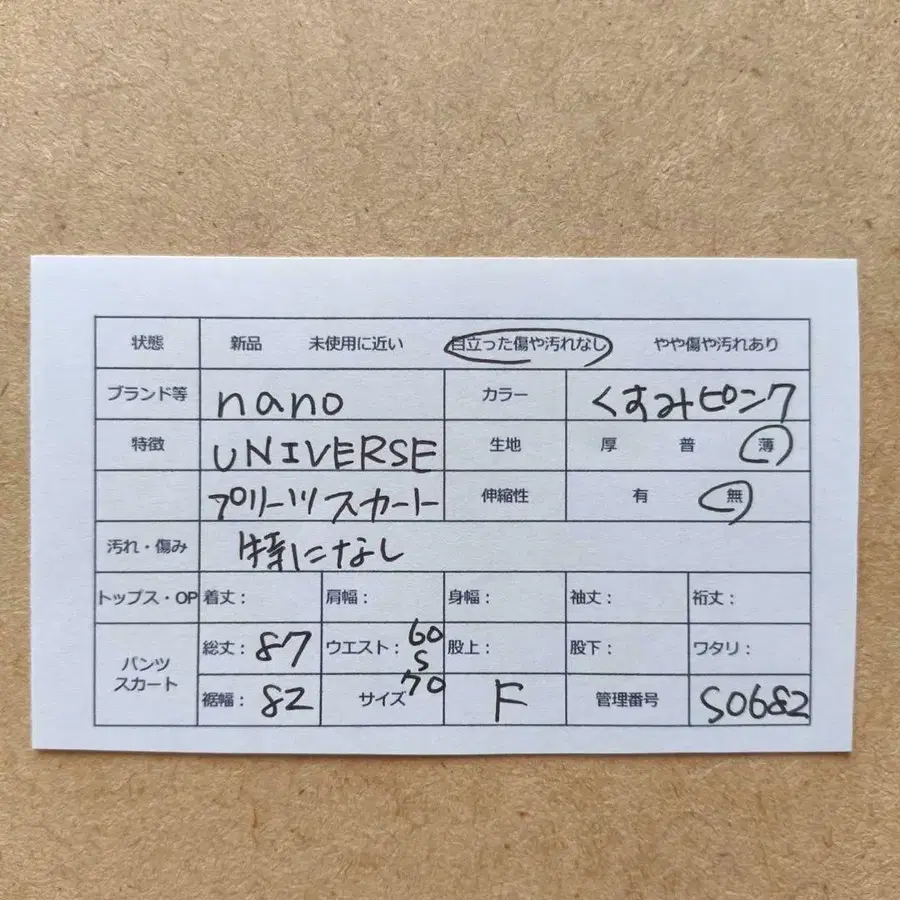 状態 新品 未使用に近い 目立った傷や汚れなし やや傷や汚れあり
ブランド等 nano カラー くすみピンク
特徴 UNIVERSE 生地 厚 普 薄
プリーツスカート 伸縮性 有 無
汚れ・傷み 特になし
トップス・OP 着丈: 肩幅: 身幅: 袖丈: 裄丈:
パンツ スカート 総丈: 87 ウエスト: 60 S 70 股上: 股下: ワタリ:
裾幅: 82 サイズ F 管理番号 S0682